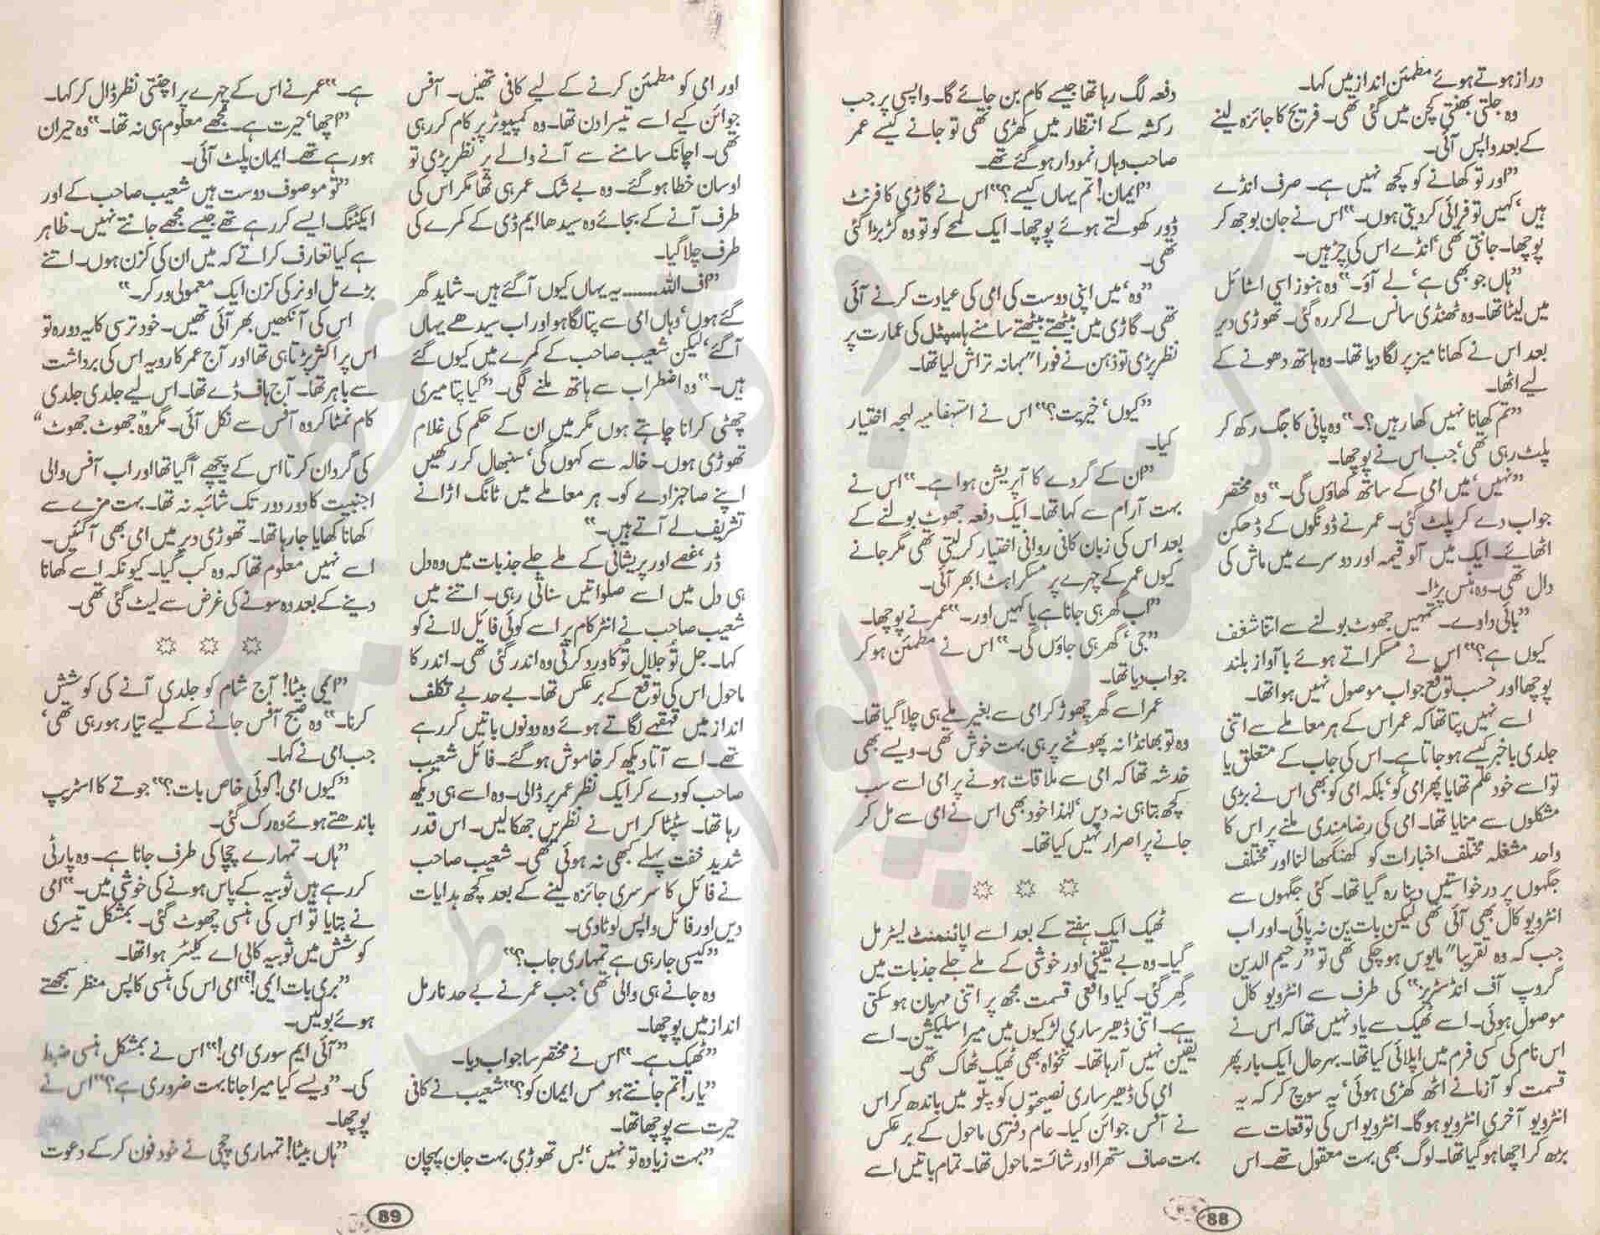 دراز ہوتے ہوئے مطمئن انداز میں کہا۔
وہ جلتی بھنتی کچن میں گئی تھی۔ فریج کا جائزہ لینے
کے بعد واپس آئی۔
"اور تو کھانے کو کچھ نہیں ہے۔ صرف انڈے
ہیں' کہیں تو فرائی کر دیتی ہوں۔" اس نے جان بوجھ کر
پوچھا۔ جانتی تھی' انڈے اس کی چڑ ہیں۔
"ہاں جو بھی ہے' لے آؤ۔" وہ ہنوز اسی اسٹائل
میں لیٹا تھا۔ وہ ٹھنڈی سانس لے کر رہ گئی۔ تھوڑی دیر
بعد اس نے کھانا میز پر لگا دیا تھا۔ وہ ہاتھ دھونے کے
لیے اٹھا۔
"تم کھانا نہیں کھا رہیں؟" وہ پانی کا جگ رکھ کر
پلٹ رہی تھی' جب اس نے پوچھا۔
"نہیں' میں امی کے ساتھ کھاؤں گی۔" وہ مختصر
جواب دے کر پلٹ گئی۔ عمر نے ڈونگوں کے ڈھکن
اٹھائے۔ ایک میں آلو قیمہ اور دوسرے میں ماش کی
دال تھی۔ وہ ہنس پڑا۔
"بائی داوے۔ تمہیں جھوٹ بولنے سے اتنا شغف
کیوں ہے؟" اس نے مسکراتے ہوئے با آواز بلند
پوچھا اور حسب توقع جواب موصول نہیں ہوا تھا۔
اسے نہیں پتا تھا کہ عمر اس کے ہر معاملے سے اتنی
جلدی باخبر کیسے ہو جاتا ہے۔ اس کی جاب کے متعلق یا
تو اسے خود علم تھا یا پھر امی کو' بلکہ امی کو بھی اس نے بڑی
مشکلوں سے منایا تھا۔ امی کی رضامندی ملنے پر اس کا
واحد مشغلہ مختلف اخبارات کو کھنگھالنا اور مختلف
جگہوں پر درخواستیں دینا رہ گیا تھا۔ کئی جگہوں سے
انٹرویو کال بھی آئی تھی لیکن بات بن نہ پائی۔ اور اب
جب کہ وہ تقریباً" مایوس ہو چکی تھی تو "رحیم الدین
گروپ آف انڈسٹریز" کی طرف سے انٹرویو کال
موصول ہوئی۔ اسے ٹھیک سے یاد نہیں تھا کہ اس نے
اس نام کی کسی فرم میں اپلائی کیا تھا۔ بہرحال ایک بار پھر
قسمت کو آزمانے اٹھ کھڑی ہوئی' یہ سوچ کر کہ یہ
انٹرویو آخری انٹرویو ہو گا۔ انٹرویو اس کی توقعات سے
بڑھ کر اچھا ہو گیا تھا۔ لوگ بھی بہت معقول تھے۔ اس
دفعہ لگ رہا تھا جیسے کام بن جائے گا۔ واپسی پر جب
رکشہ کے انتظار میں کھڑی تھی تو جانے کیسے عمر
صاحب وہاں نمودار ہو گئے تھے۔
"ایمان! تم یہاں کیسے؟" اس نے گاڑی کا فرنٹ
ڈور کھولتے ہوئے پوچھا۔ ایک لمحے کو تو وہ گڑبڑا گئی
تھی۔
"وہ' میں اپنی دوست کی امی کی عیادت کرنے آئی
تھی۔ گاڑی میں بیٹھتے بیٹھتے سامنے ہاسپٹل کی عمارت پر
نظر پڑی تو ذہن نے فوراً" بہانہ تراش لیا تھا۔
"کیوں' خیریت؟" اس نے استفہامیہ لہجہ اختیار
کیا۔
"ان کے گردے کا آپریشن ہوا ہے۔" اس نے
بہت آرام سے کہا تھا۔ ایک دفعہ جھوٹ بولنے کے
بعد اس کی زبان کافی روانی اختیار کر لیتی تھی مگر جانے
کیوں عمر کے چہرے پر مسکراہٹ ابھر آئی۔
"اب گھر ہی جانا ہے یا کہیں اور۔" عمر نے پوچھا۔
"جی' گھر ہی جاؤں گی۔" اس نے مطمئن ہو کر
جواب دیا تھا۔
عمر اسے گھر چھوڑ کر امی سے بغیر ملے ہی چلا گیا تھا۔
وہ تو بھانڈا نہ پھوٹنے پر ہی بہت خوش تھی۔ ویسے بھی
خدشہ تھا کہ امی سے ملاقات ہونے پر امی اسے سب
کچھ بتا ہی نہ دیں' لہٰذا خود بھی اس نے امی سے مل کر
جانے پر اصرار نہیں کیا تھا۔
ٹھیک ایک ہفتے کے بعد اسے اپائنمنٹ لیٹر مل
گیا۔ وہ بے یقینی اور خوشی کے ملے جلے جذبات میں
گھر گئی۔ کیا واقعی قسمت مجھ پر اتنی مہربان ہو سکتی
ہے۔ اتنی ڈھیر ساری لڑکیوں میں میرا سلیکشن۔ اسے
یقین نہیں آ رہا تھا۔ تنخواہ بھی ٹھیک ٹھاک تھی۔
امی کی ڈھیر ساری نصیحتوں کو پلو میں باندھ کر اس
نے آفس جوائن کیا۔ عام دفتری ماحول کے برعکس
بہت صاف ستھرا اور شائستہ ماحول تھا۔ تمام باتیں اسے
88
اور امی کو مطمئن کرنے کے لیے کافی تھیں۔ آفس
جوائن کیے اسے تیسرا دن تھا۔ وہ کمپیوٹر پر کام کر رہی
تھی۔ اچانک سامنے سے آنے والے پر نظر پڑی تو
اوسان خطا ہو گئے۔ وہ بے شک عمر ہی تھا مگر اس کی
طرف آنے کے بجائے وہ سیدھا ایم ڈی کے کمرے کی
طرف چلا گیا۔
"اف اللہ...... یہ یہاں کیوں آ گئے ہیں۔ شاید گھر
گئے ہوں' وہاں امی سے پتا لگا ہو اور اب سیدھے یہاں
آ گئے' لیکن شعیب صاحب کے کمرے میں کیوں گئے
ہیں۔" وہ اضطراب سے ہاتھ ملنے لگی۔ "کیا پتا میری
چھٹی کرانا چاہتے ہوں مگر میں ان کے حکم کی غلام
تھوڑی ہوں۔ خالہ سے کہوں گی' سنبھال کر رکھیں
اپنے صاحبزادے کو۔ ہر معاملے میں ٹانگ اڑانے
تشریف لے آتے ہیں۔"
ڈر' غصے اور پریشانی کے ملے جلے جذبات میں وہ دل
ہی دل میں اسے صلواتیں سناتی رہی۔ اتنے میں
شعیب صاحب نے انٹرکام پر اسے کوئی فائل لانے کو
کہا۔ جل تو جلال تو کا ورد کرتی وہ اندر گئی تھی۔ اندر کا
ماحول اس کی توقع کے برعکس تھا۔ بے حد بے تکلف
انداز میں قہقہے لگاتے ہوئے وہ دونوں باتیں کر رہے
تھے۔ اسے آتا دیکھ کر خاموش ہو گئے۔ فائل شعیب
صاحب کو دے کر ایک نظر عمر پر ڈالی۔ وہ اسے ہی دیکھ
رہا تھا۔ سٹپٹا کر اس نے نظریں جھکا لیں۔ اس قدر
شدید خفت پہلے کبھی نہ ہوئی تھی۔ شعیب صاحب
نے فائل کا سرسری جائزہ لینے کے بعد کچھ ہدایات
دیں اور فائل واپس لوٹا دی۔
"کیسی جا رہی ہے تمہاری جاب؟"
وہ جانے ہی والی تھی' جب عمر نے بے حد نارمل
انداز میں پوچھا۔
"ٹھیک ہے۔" اس نے مختصر سا جواب دیا۔
"یار! تم جانتے ہو مس ایمان کو؟" شعیب نے کافی
حیرت سے پوچھا تھا۔
"بہت زیادہ تو نہیں' بس تھوڑی بہت جان پہچان
ہے۔" عمر نے اس کے چہرے پر اچٹتی نظر ڈال کر کہا۔
"اچھا' حیرت ہے۔ مجھے معلوم ہی نہ تھا۔" وہ حیران
ہو رہے تھے۔ ایمان پلٹ آئی۔
"تو موصوف دوست ہیں شعیب صاحب کے اور
ایکٹنگ ایسے کر رہے تھے جیسے مجھے جانتے نہیں۔ ظاہر
ہے کیا تعارف کراتے کہ میں ان کی کزن ہوں۔ اتنے
بڑے مل اونر کی کزن ایک معمولی ورکر۔"
اس کی آنکھیں بھر آئی تھیں۔ خود ترسی کا یہ دورہ تو
اس پر اکثر پڑتا ہی تھا اور آج عمر کا رویہ اس کی برداشت
سے باہر تھا۔ آج ہاف ڈے تھا۔ اس لیے جلدی جلدی
کام نمٹا کر وہ آفس سے نکل آئی۔ مگر وہ "جھوٹ جھوٹ"
کی گردان کرتا اس کے پیچھے آ گیا تھا اور اب آفس والی
اجنبیت کا دور دور تک شائبہ نہ تھا۔ بہت مزے سے
کھانا کھایا جا رہا تھا۔ تھوڑی دیر میں امی بھی آ گئیں۔
اسے نہیں معلوم تھا کہ وہ کب گیا۔ کیونکہ اسے کھانا
دینے کے بعد وہ سونے کی غرض سے لیٹ گئی تھی۔
"ایمی بیٹا! آج شام کو جلدی آنے کی کوشش
کرنا۔" وہ صبح آفس جانے کے لیے تیار ہو رہی تھی'
جب امی نے کہا۔
"کیوں امی! کوئی خاص بات؟" جوتے کا اسٹریپ
باندھتے ہوئے وہ رک گئی۔
"ہاں۔ تمہارے چچا کی طرف جانا ہے۔ وہ پارٹی
کر رہے ہیں ثوبیہ کے پاس ہونے کی خوشی میں۔" امی
نے بتایا تو اس کی ہنسی چھوٹ گئی۔ بمشکل تیسری
کوشش میں ثوبیہ کا بی اے کلیئر ہوا تھا۔
"بری بات ایمی!" امی اس کی ہنسی کا پس منظر سمجھتے
ہوئے بولیں۔
"آئی ایم سوری امی!" اس نے بمشکل ہنسی ضبط
کی۔ "ویسے کیا میرا جانا بہت ضروری ہے؟" اس نے
پوچھا۔
"ہاں بیٹا! تمہاری چچی نے خود فون کر کے دعوت
89